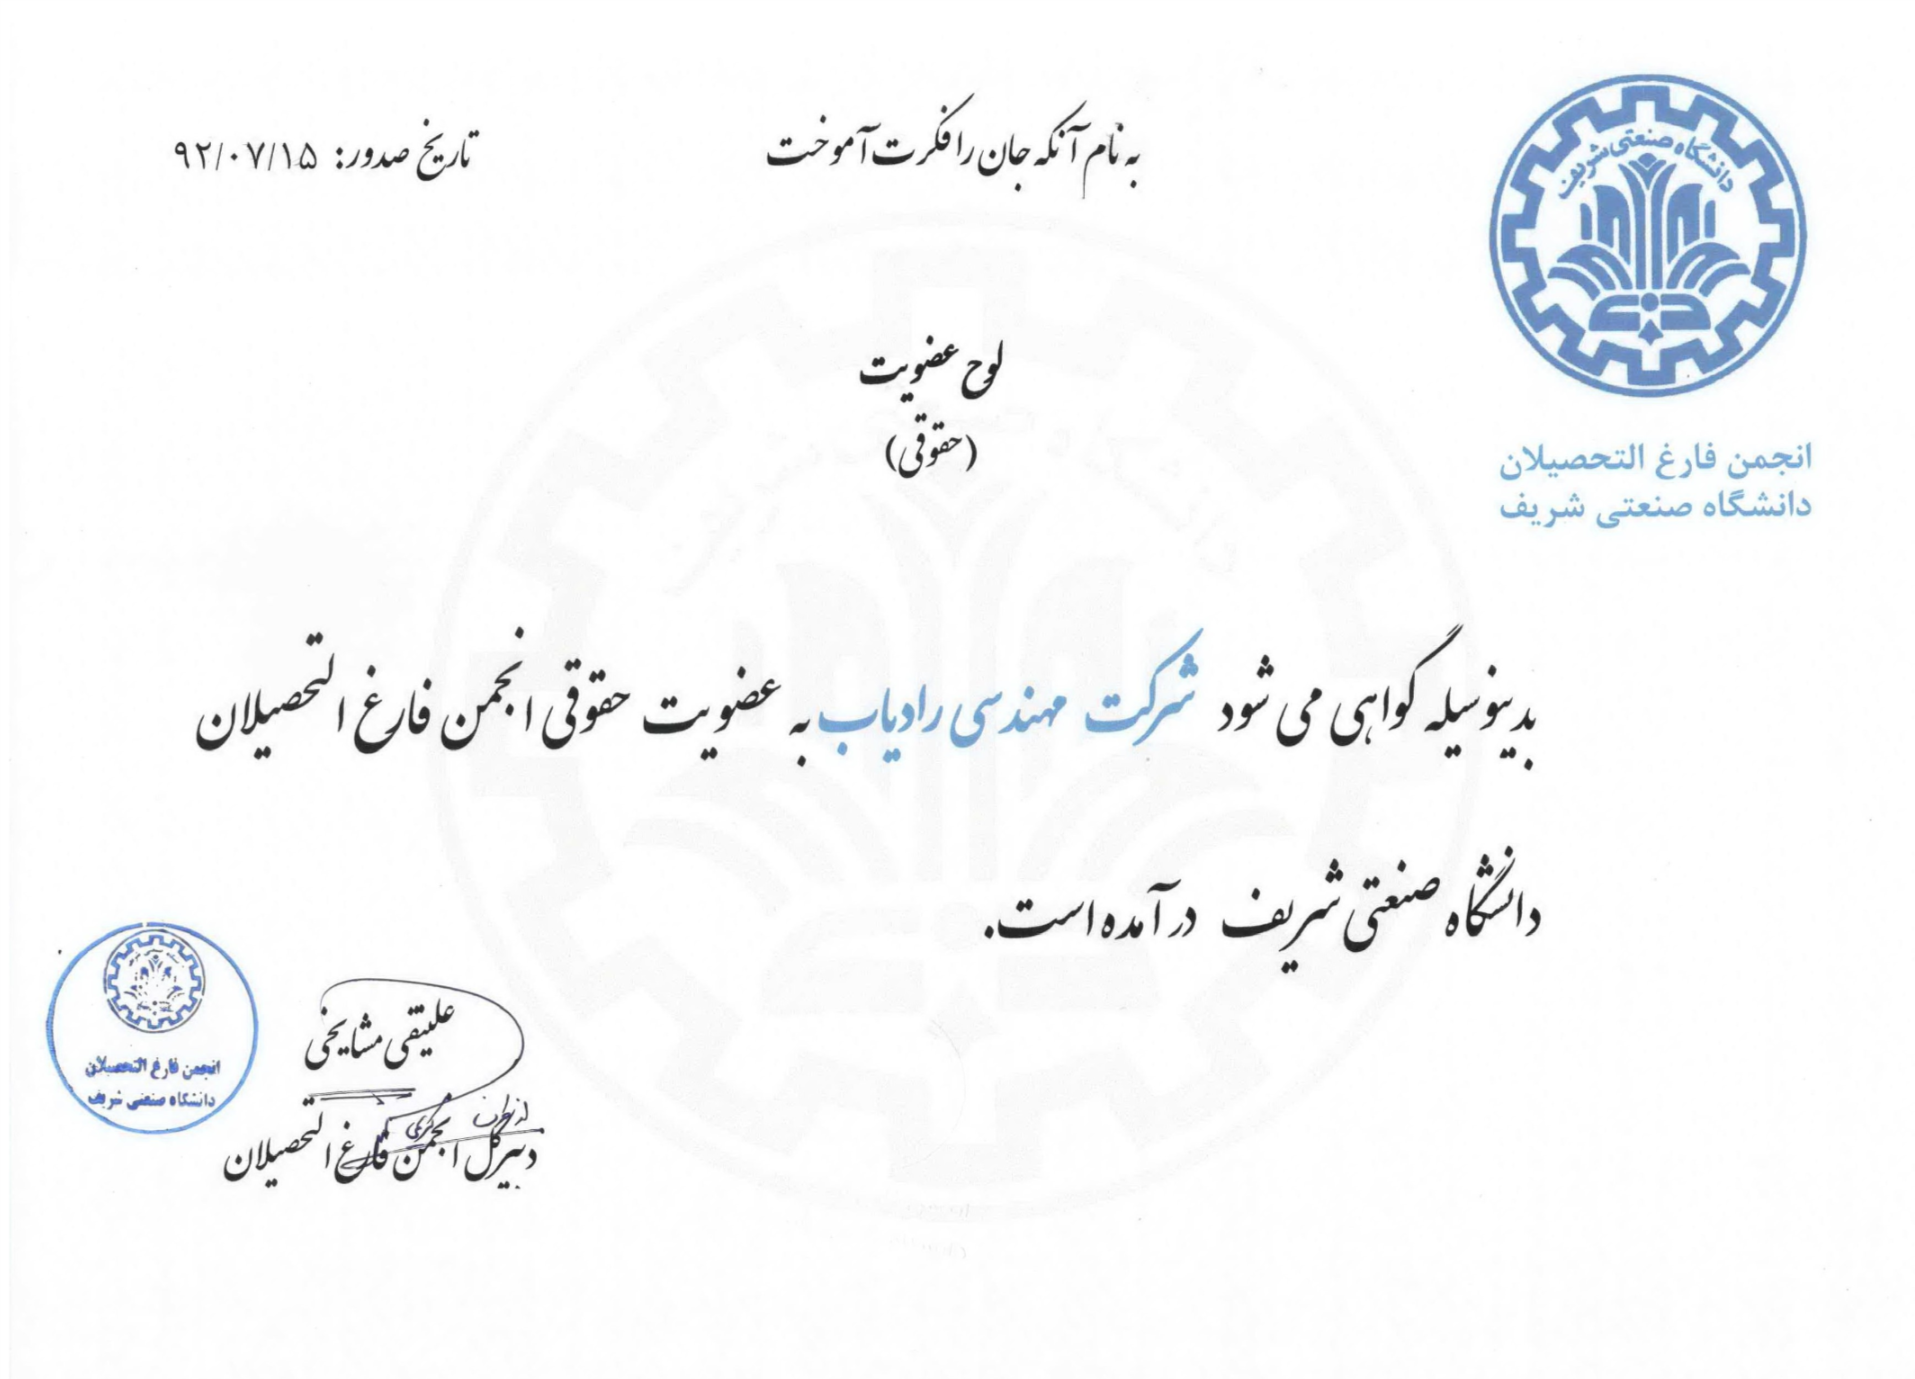 به نام آنکه جان را فکرت آموخت
تاریخ صدور: ۹۲/۰۷/۱۵
دانشگاه صنعتی شریف
انجمن فارغ التحصیلان
دانشگاه صنعتی شریف
لوح عضویت
(حقوقی)
بدینوسیله گواهی می شود شرکت مهندسی رادیاب به عضویت حقوقی انجمن فارغ التحصیلان
دانشگاه صنعتی شریف درآمده است.
علینقی مشایخی
از طرف
دبیرکل انجمن فارغ التحصیلان
انجمن فارغ التحصیلان
دانشگاه صنعتی شریف